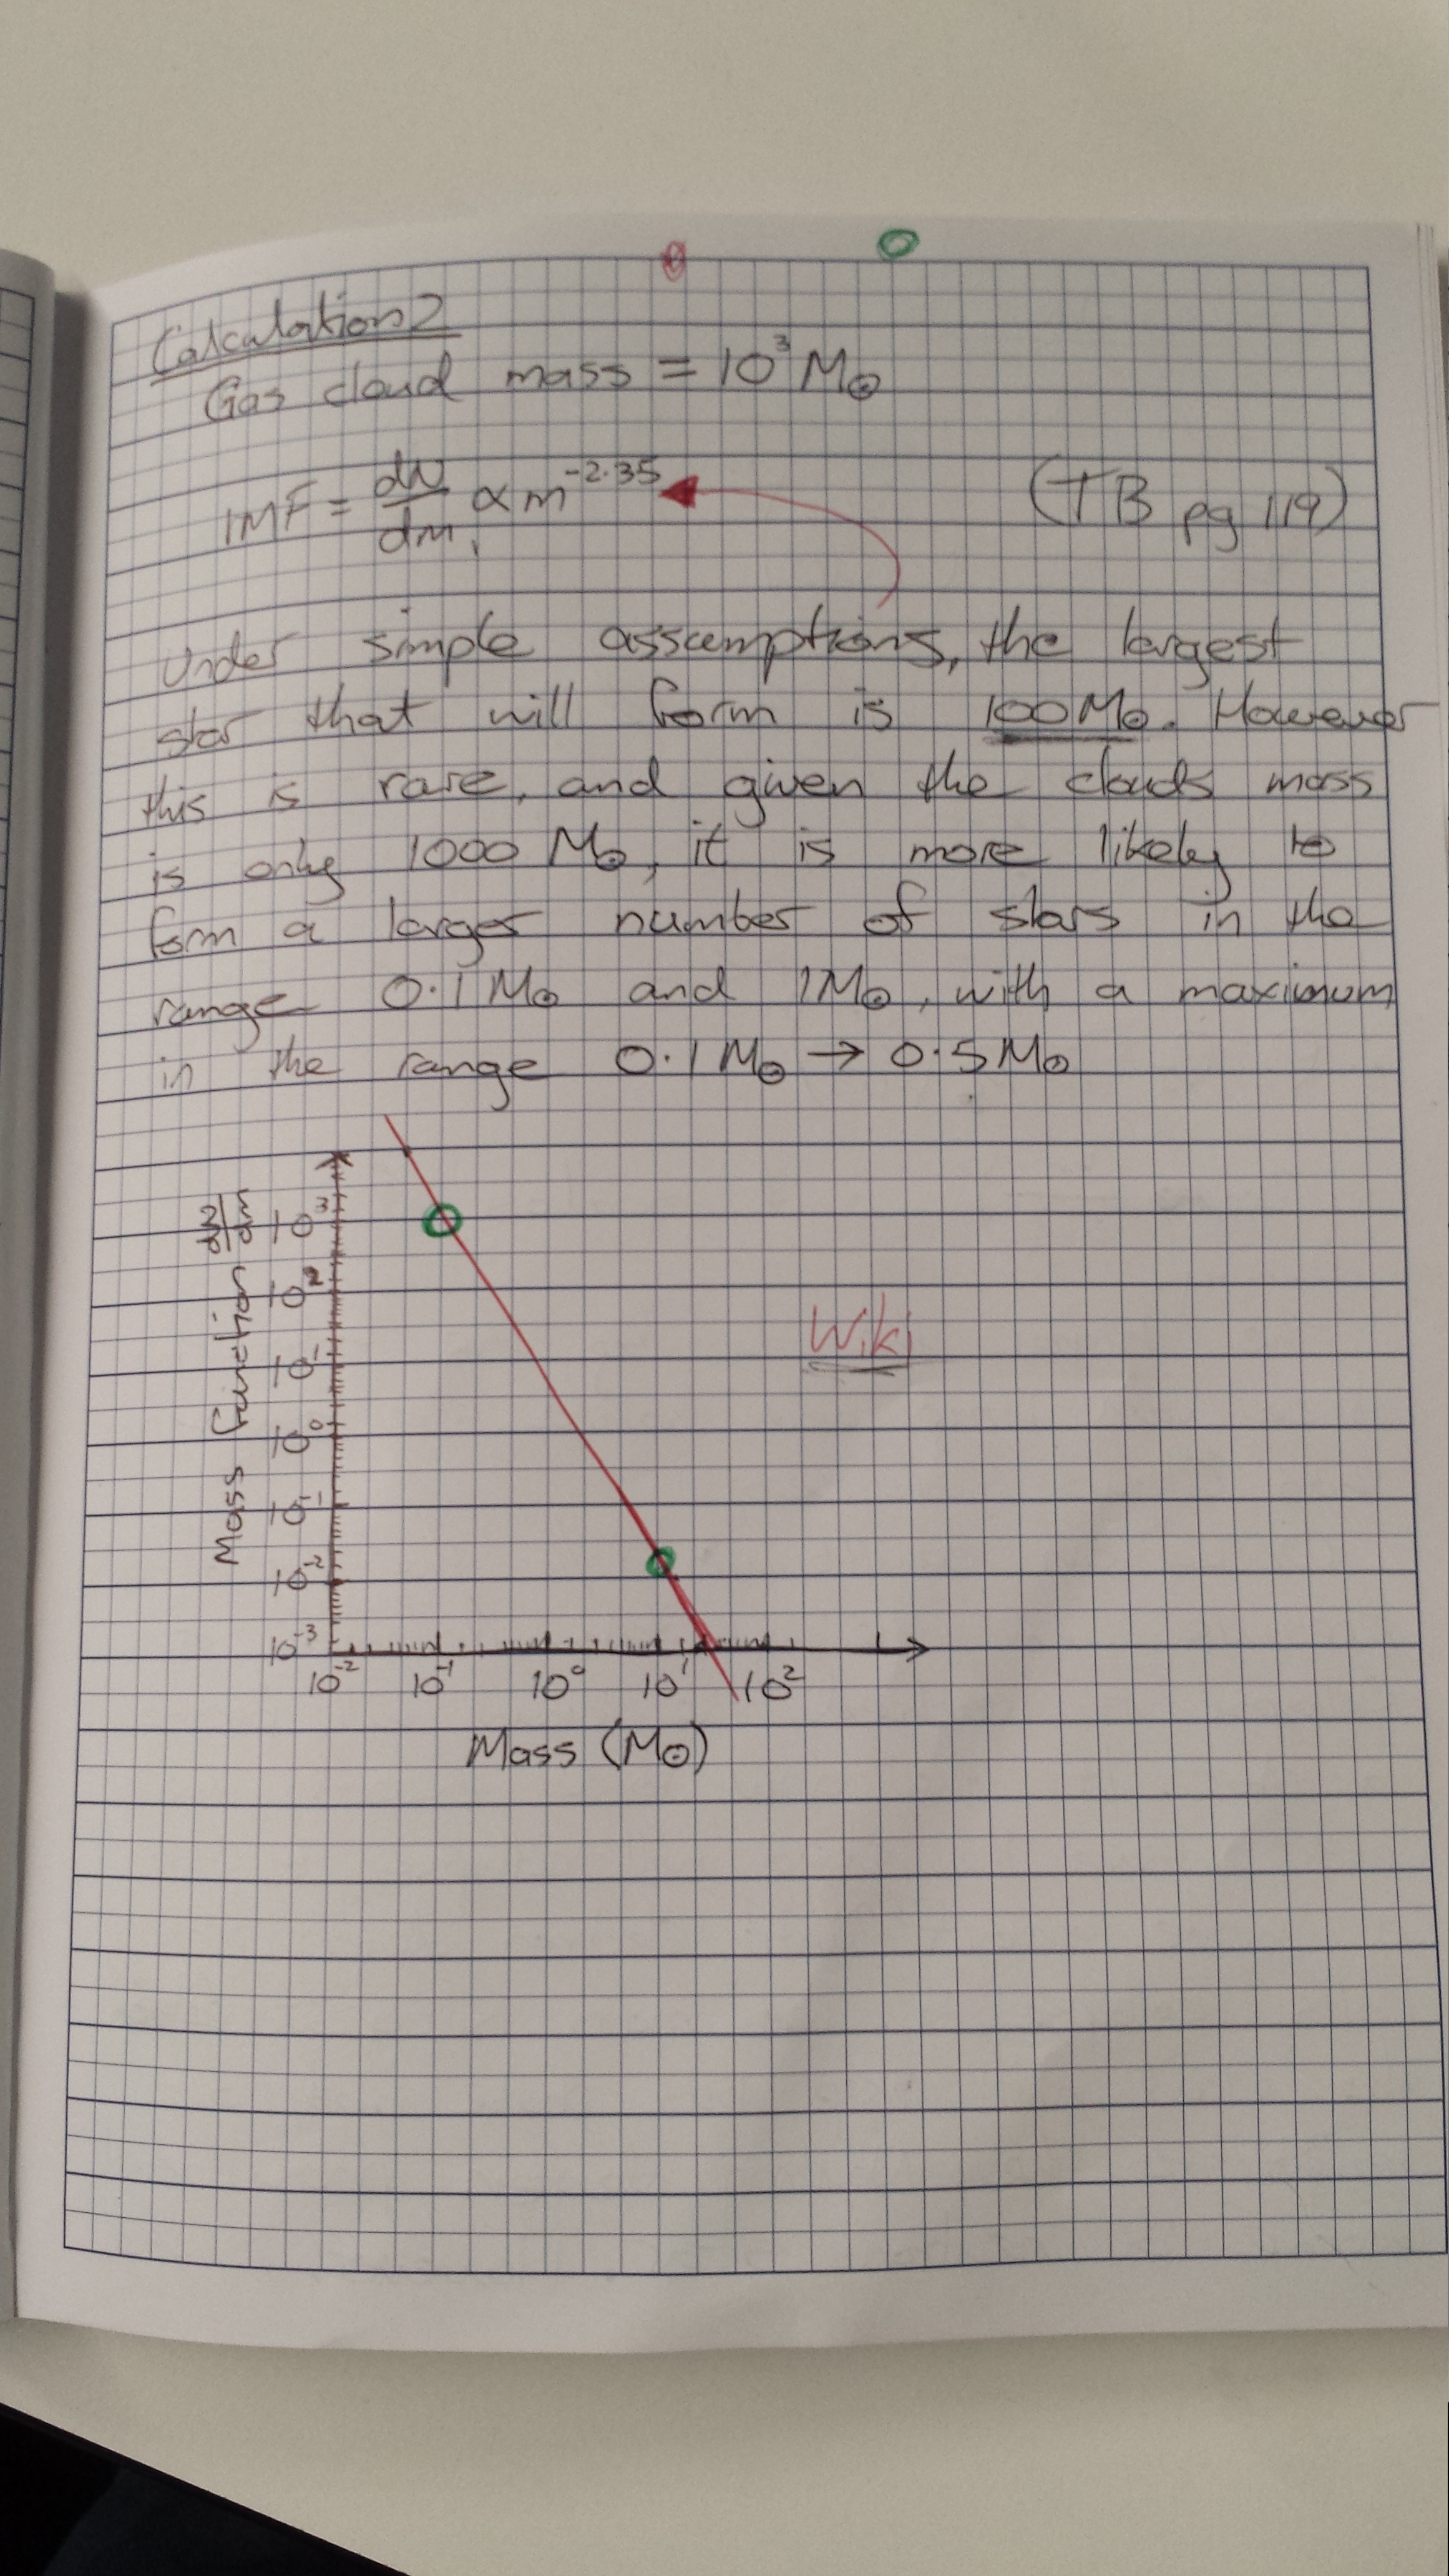 Calculation 2
Gas cloud mass = 10³ M☉
IMF = dN/dm ∝ m^-2.35 (TB pg 119)
Under simple assumptions, the largest
star that will form is 100M☉. However
this is rare, and given the clouds mass
is only 1000 M☉, it is more likely to
form a larger number of stars in the
range 0.1 M☉ and 1M☉, with a maximum
in the range 0.1 M☉ → 0.5 M☉
Mass function dN/dm
10³
10²
10¹
10⁰
10⁻¹
10⁻²
10⁻³
Wiki
10⁻² 10⁻¹ 10⁰ 10¹ 10²
Mass (M☉)